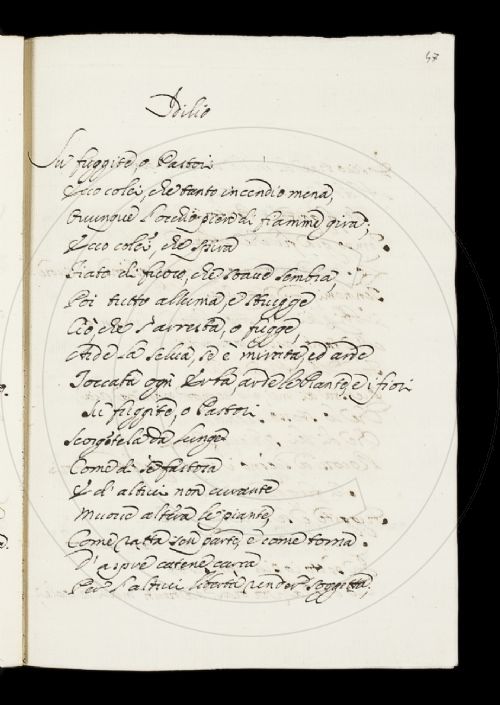 47
Idilio
Su fuggite, o Pastori
Ecco colei, che tanto incendio mena,
Ovunque l'occhio pien di fiamme gira;
Ecco colei, che spira
Fiato di fuoco, che soave sembra,
Poi tutto alluma, e strugge
Ciò che s'arresta, o fugge,
Arde la selva, se è mirata, ed arde
Toccata ogni erba, arde le Piante, e i fiori
Su fuggite, o Pastori
Scorgetela da lunge
Come di se fastosa
E d'altrui non curante
Muove altera le piante,
Come ratta sen parte, e come torna
D'aspre catene
Per l'altrui libertà render soggetta,